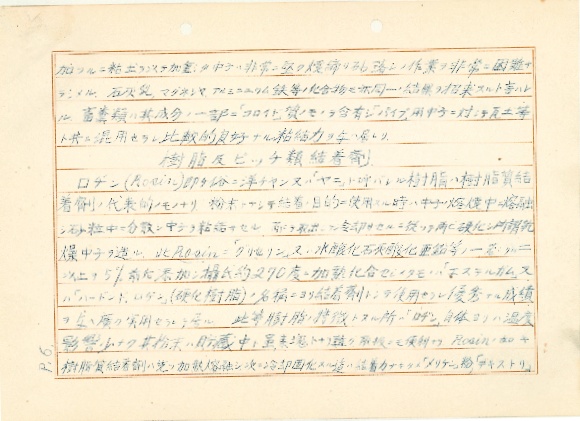 加フルニ粘土ヲ以テ加蓋シ中子ハ非常ニ堅ク
ラシメル 石灰乳 マグネシヤ アルミニウム 鉄等ノ化合物モ亦同一ノ結果ヲ招来スルト言ハレ
ル 畜糞類ハ其成分ノ一部ニ「コロイド」質ノモノヲ含有シ「パイプ」用中子ニ対シテ瓦土等
ト共ニ混用セラレ比較的良好ナル粘結力ヲ与ヘ居レリ
樹脂及ピッチ類結着剤
ロヂン(Rosin)即チ俗ニ洋チャン又ハ「ヤニ」ト呼バレル樹脂ハ樹脂質結
着剤ノ代表的ノモノナリ 粉末ナシテ結着ノ目的ニ使用スル時ハ中子ノ焙焼中ニ熔融
シ砂粒中ニ分散シ中子ヲ粘結セシメ 冷却セルニ従ツテ再ビ硬化シ所謂乾
燥中子ヲ造ル 此Rosinニ「グリセリン」又ハ水酸化石灰酸化亜鉛等ノ一種
以上ヲ5%前後添加シ摂氏約270度ニ加熱化合セルメタモノハ「エステルガム」又
ハ「ハードンド、ロヂン」(硬化樹脂)ノ名称ニヨリ結着剤トシテ使用セラレ優秀ナル成績
ヲ呈シ広ク実用セラレテ居ル 此等樹脂ノ特徴トスル所ハ「ロヂン」自体ヨリハ温度
影響少ナク其粉末ハ貯蔵中ニ Rosinノ如キ
樹脂質結着剤ハ先ヅ加熱熔融シ次ニ冷却固化スル迄ハ結着力ナキ 「メリケン」粉「デキストリン」
P.6.